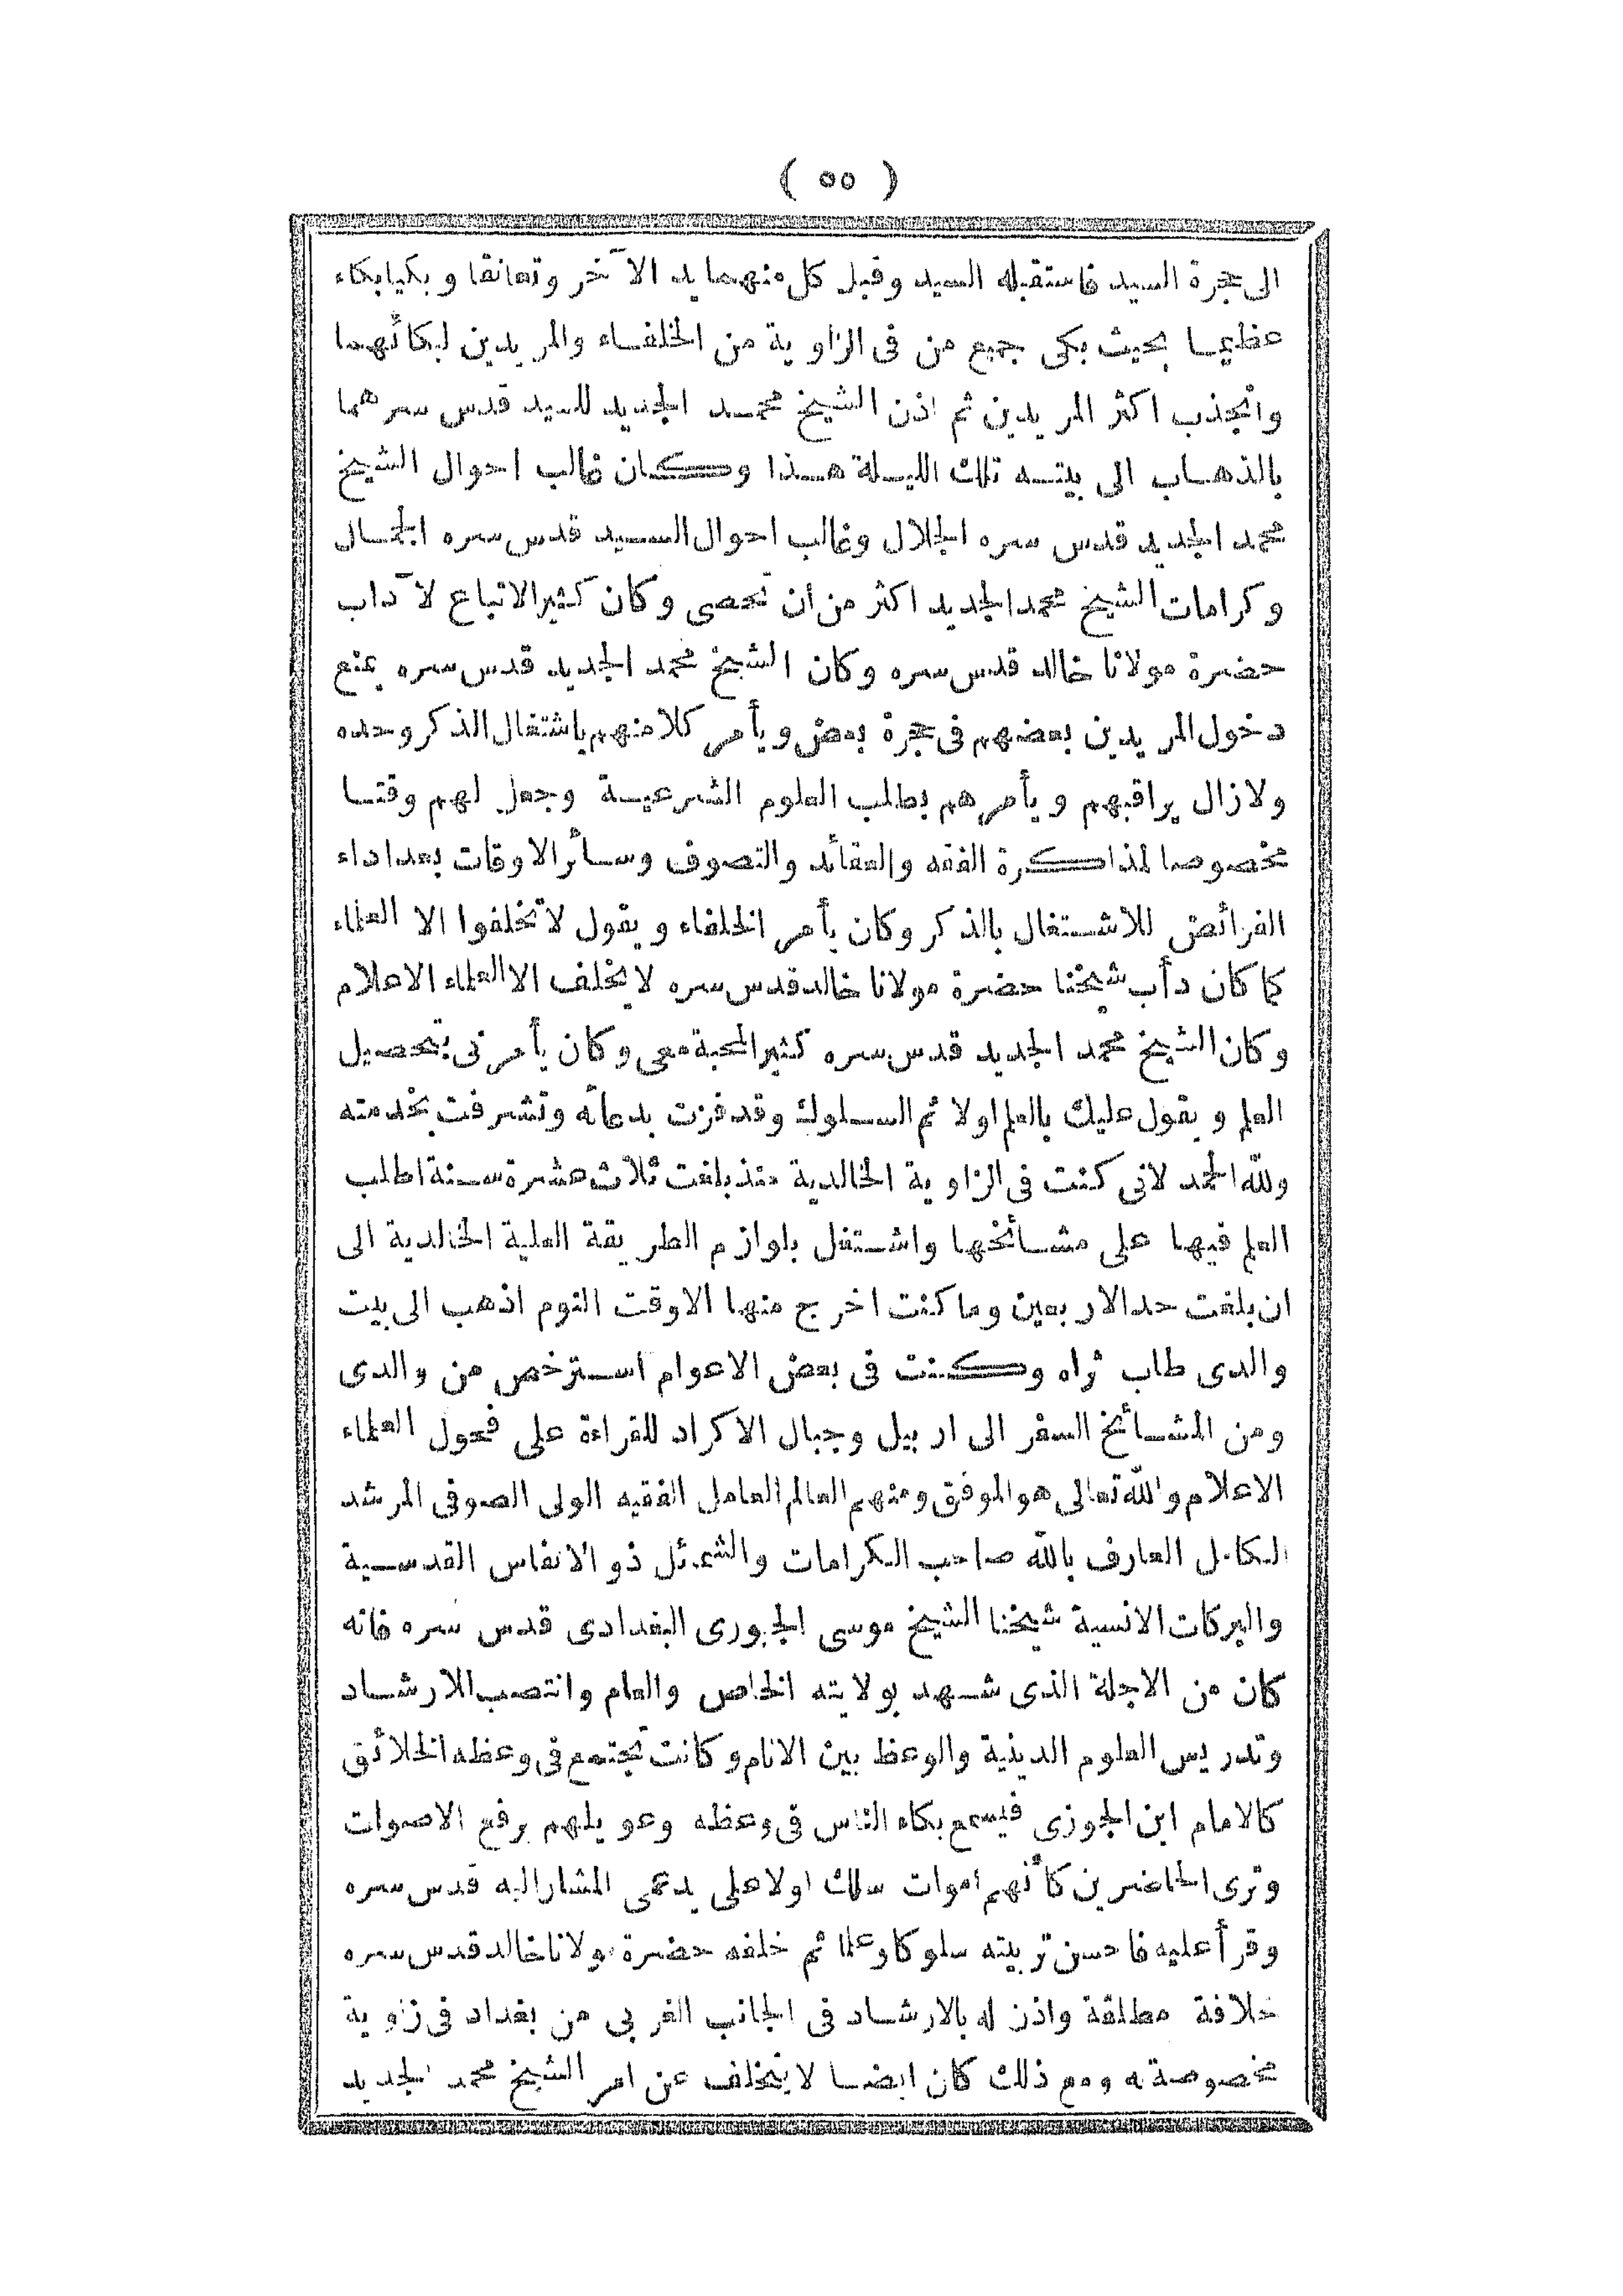 ( ٥٥ )
الى حجرة السيد فاستقبله السيد وقبل كل منهما يد الآخر وتعانقا وبكيا بكاء
عظيما بحيث بكى جميع من فى الزاوية من الخلفاء والمريدين لبكائهما
وانجذب اكثر المريدين ثم اذن الشيخ محمد الجديد للسيد قدس سرهما
بالذهاب الى بيته تلك الليلة هذا وكان غالب احوال الشيخ
محمد الجديد قدس سره الجلال وغالب احوال السيد قدس سره الجمال
وكرامات الشيخ محمد الجديد اكثر من أن تحصى وكان كثير الاتباع لآداب
حضرة مولانا خالد قدس سره وكان الشيخ محمد الجديد قدس سره يمنع
دخول المريدين بعضهم فى حجرة بعض ويأمر كلا منهم باشتغال الذكر وحده
ولازال يراقبهم ويأمرهم بطلب العلوم الشرعية وجعل لهم وقتا
مخصوصا لمذاكرة الفقه والعقائد والتصوف وسائر الاوقات بعد اداء
الفرائض للاشتغال بالذكر وكان يأمر الخلفاء ويقول لاتخلفوا الا العلماء
كما كان دأب شيخنا حضرة مولانا خالد قدس سره لايخلف الا العلماء الاعلام
وكان الشيخ محمد الجديد قدس سره كثير المحبة معى وكان يأمرنى بتحصيل
العلم ويقول عليك بالعلم اولا ثم السلوك وقد فزت بدعائه وتشرفت بخدمته
ولله الحمد لانى كنت فى الزاوية الخالدية منذ بلغت ثلاث عشرة سنة اطلب
العلم فيها على مشائخها واشتغل بلوازم الطريقة العلية الخالدية الى
ان بلغت حد الاربعين وما كنت اخرج منها الا وقت النوم اذهب الى بيت
والدى طاب ثراه وكنت فى بعض الاعوام استرخص من والدى
ومن المشائخ السفر الى اربيل وجبال الاكراد للقراءة على فحول العلماء
الاعلام والله تعالى هو الموفق ومنهم العالم العامل الفقيه الولى الصوفى المرشد
الكامل العارف بالله صاحب الكرامات والشمائل ذو الانفاس القدسية
والبركات الانسية شيخنا الشيخ موسى الجبورى البغدادى قدس سره فانه
كان من الاجلة الذى شهد بولايته الخاص والعام وانتصب للارشاد
وتدريس العلوم الدينية والوعظ بين الانام وكانت تجتمع فى وعظه الخلائق
كالامام ابن الجوزى فيسمع بكاء الناس فى وعظه وعويلهم برفع الاصوات
وترى الحاضرين كأنهم اموات سلك اولا على يد عمى المشار اليه قدس سره
وقرأ عليه فاحسن تربيته سلوكا وعلما ثم خلفه حضرة مولانا خالد قدس سره
خلافة مطلقة واذن له بالارشاد فى الجانب الغربى من بغداد فى زاوية
مخصوصة به ومع ذلك كان ايضا لايتخلف عن امر الشيخ محمد الجديد